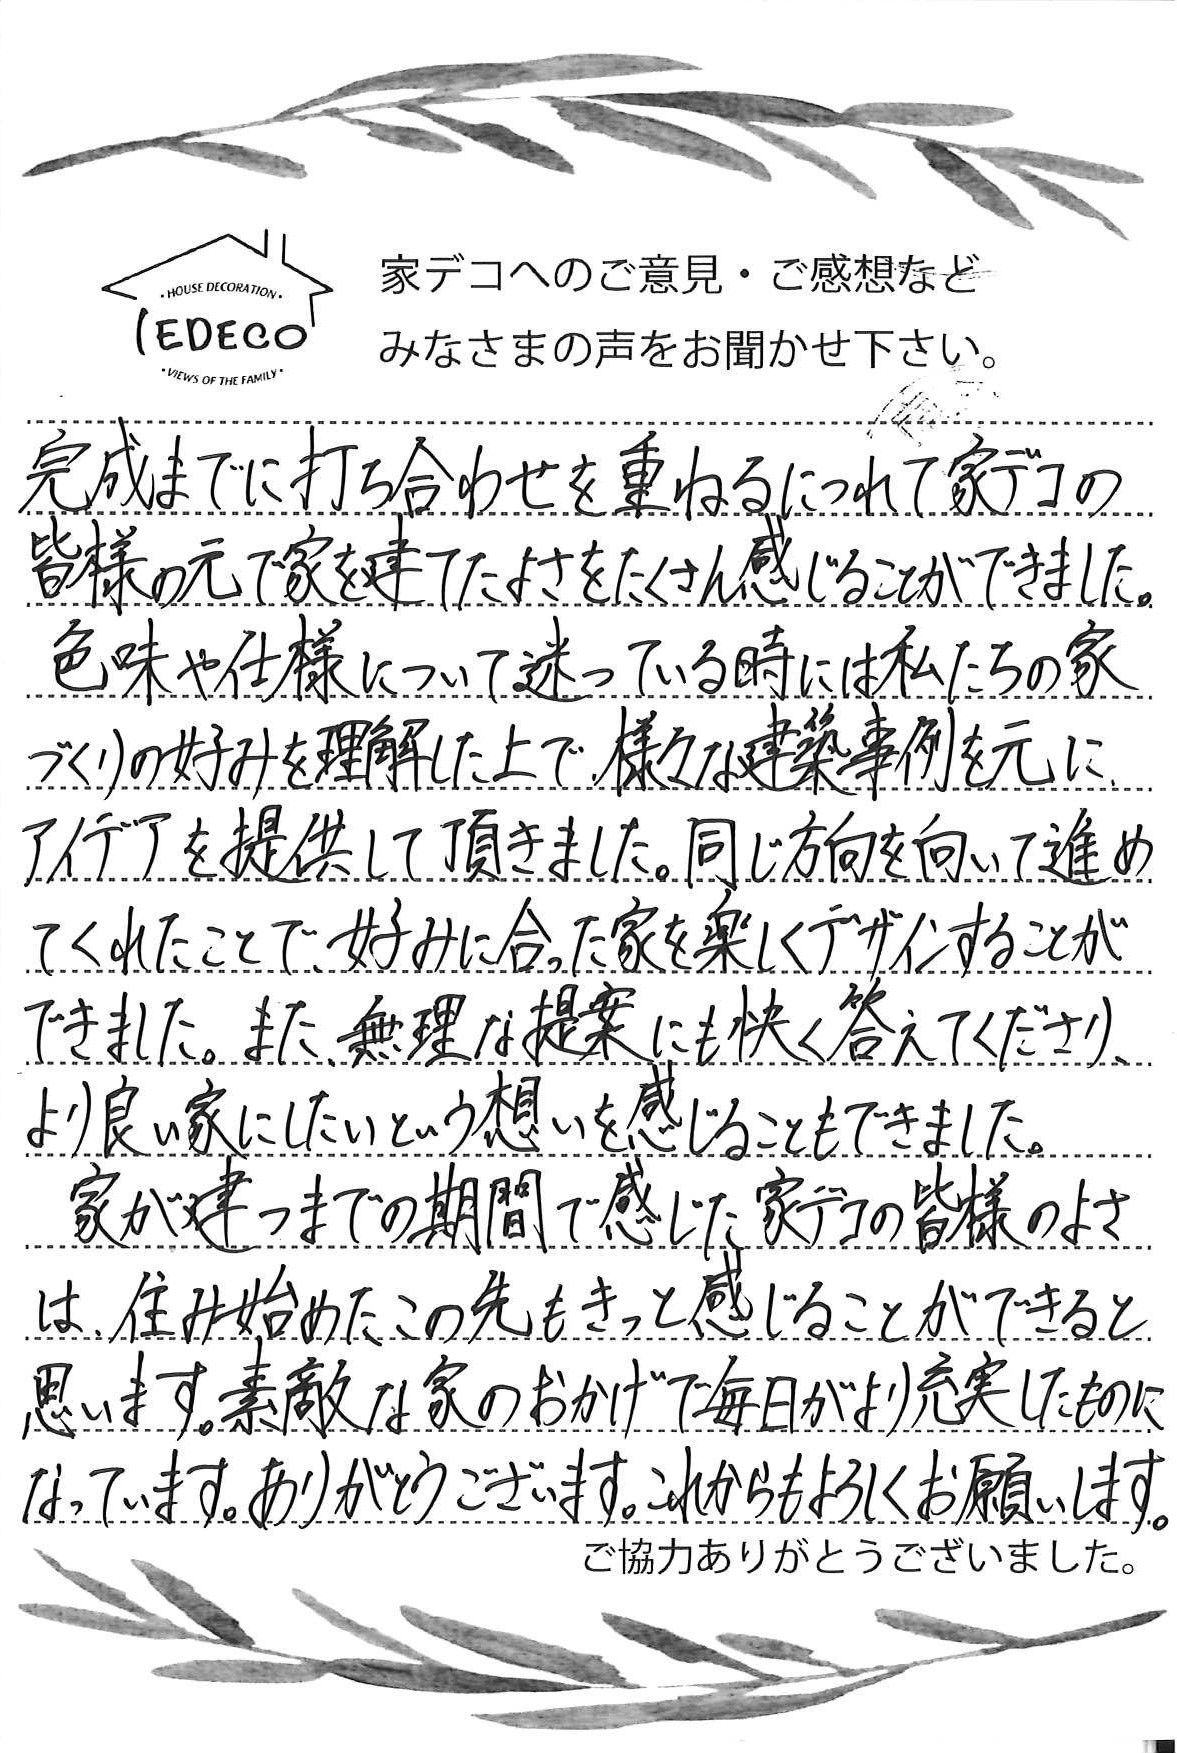 ・HOUSE DECORATION・
IEDECO
・VIEWS OF THE FAMILY・
家デコへのご意見・ご感想など
みなさまの声をお聞かせ下さい。
完成までに打ち合わせを重ねるにつれて家デコの
皆様の元で家を建てたよさをたくさん感じることができました。
色味や仕様について迷っている時には私たちの家
づくりの好みを理解した上で、様々な建築事例を元に、
アイデアを提供して頂きました。同じ方向を向いて進め
てくれたことで、好みに合った家を楽しくデザインすることが
できました。また、無理な提案にも快く答えてくださり、
より良い家にしたいという想いを感じることもできました。
家が建つまでの期間で感じた家デコの皆様のよさ
は、住み始めたこの先もきっと感じることができると
思います。素敵な家のおかげで毎日がより充実したものに
なっています。ありがとうございます。これからもよろしくお願いします。
ご協力ありがとうございました。